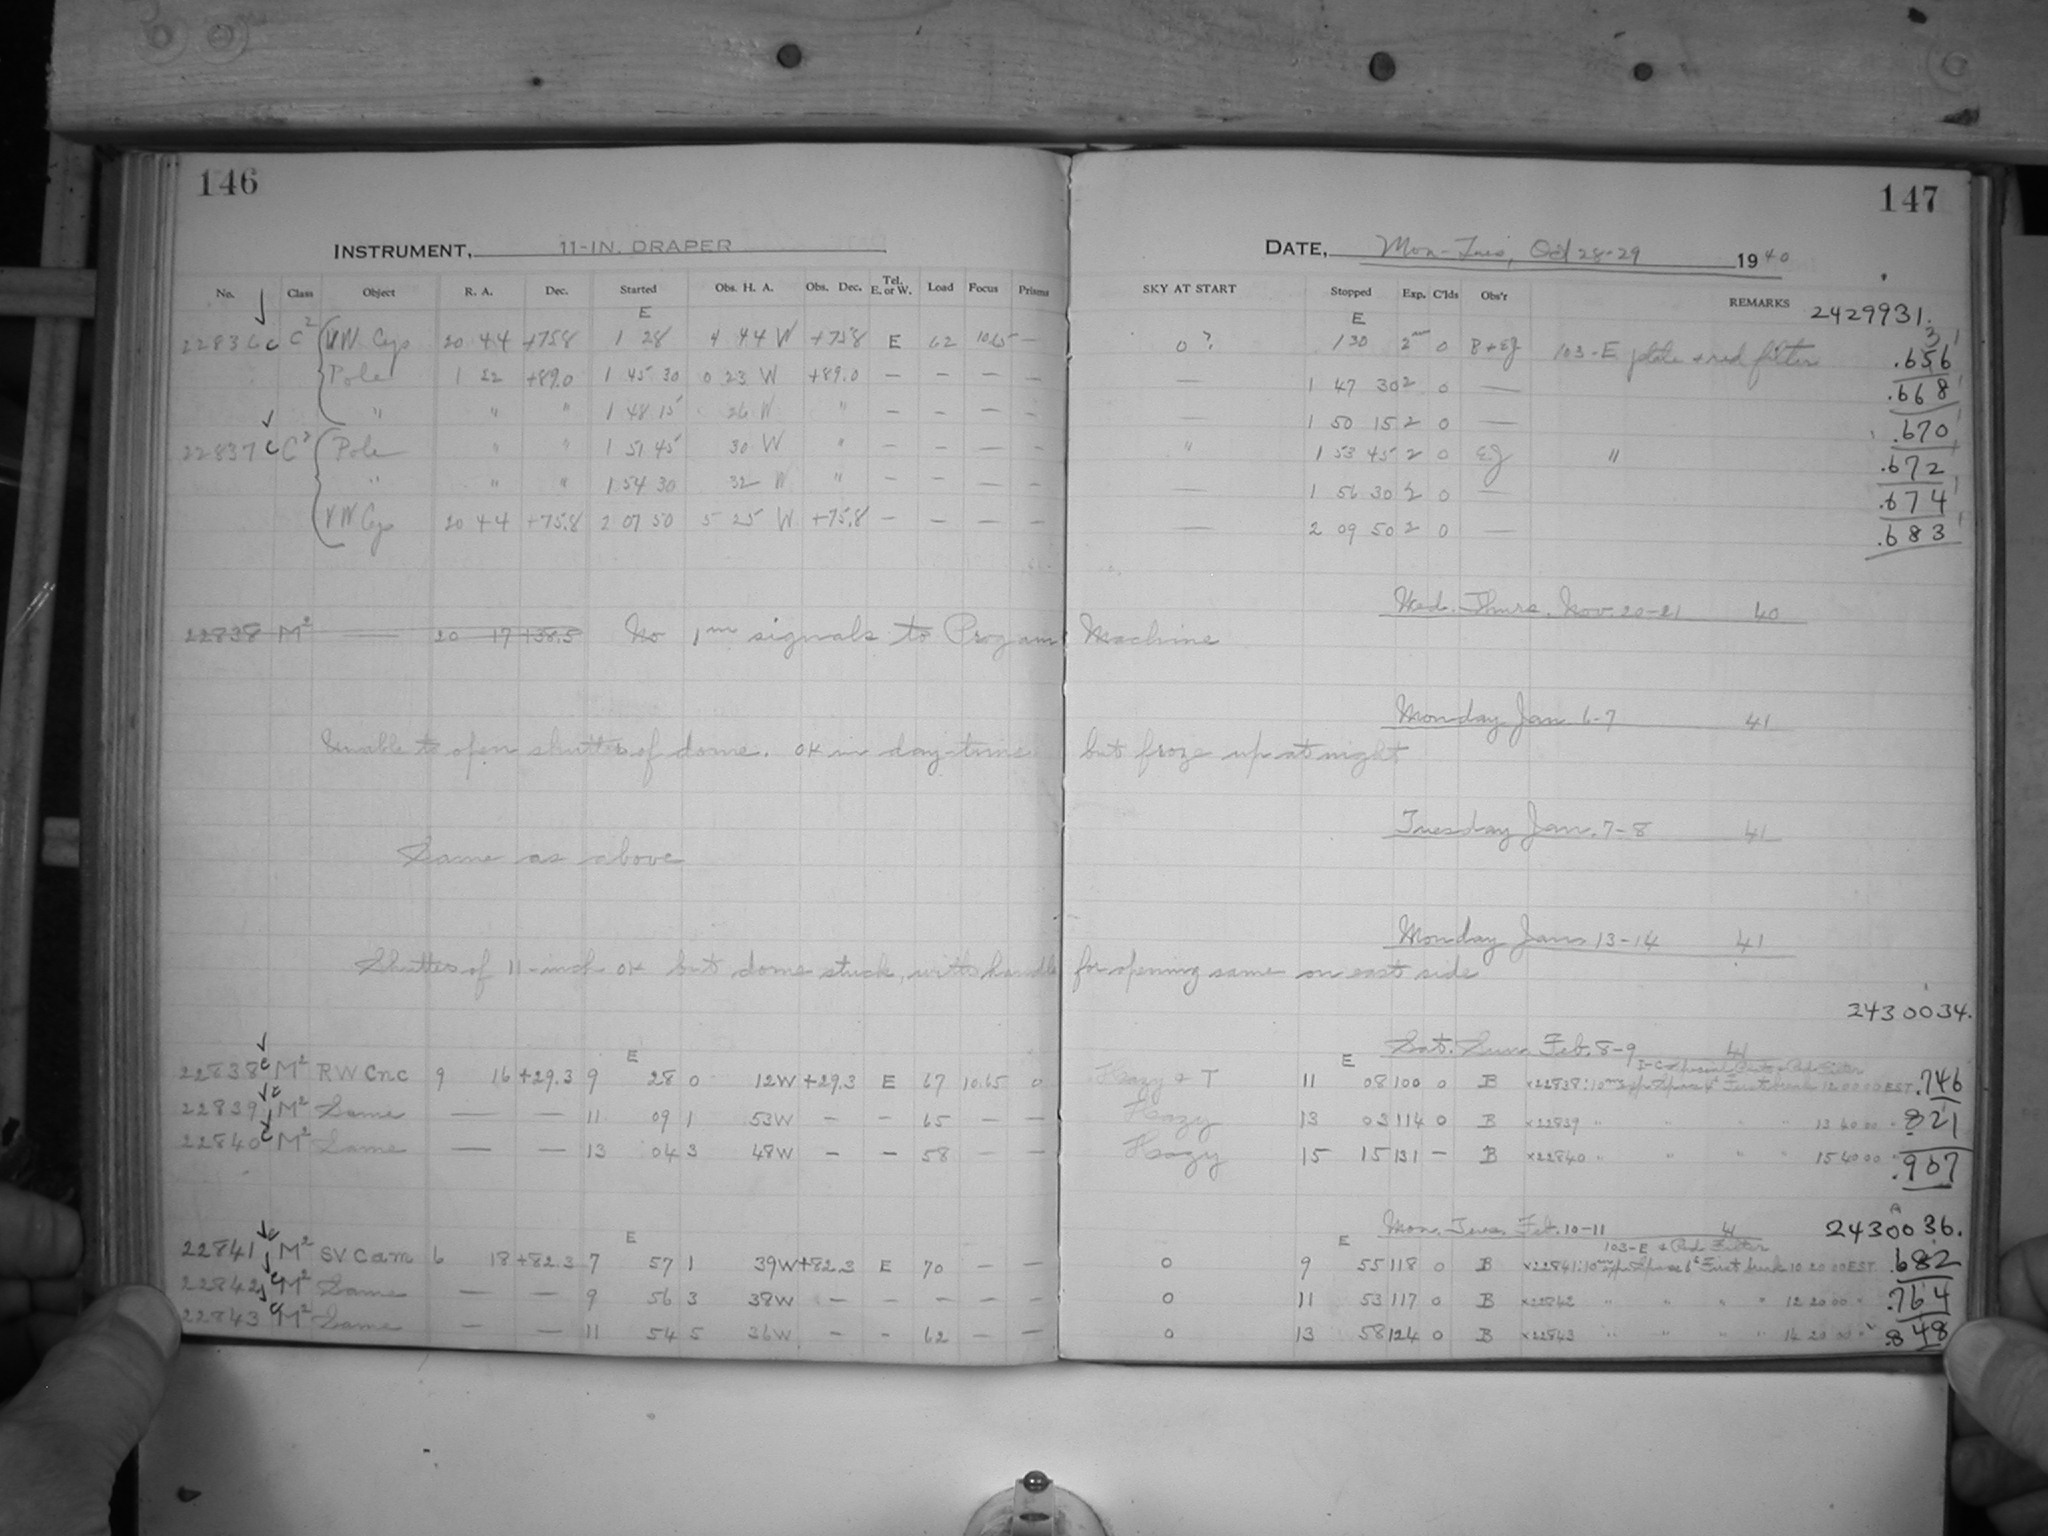 146
147
INSTRUMENT, 11-IN. DRAPER
DATE, Mon-Tues, Oct 28-29 1940
No. Class Object R. A. Dec. Started Obs. H. A. Obs. Dec. Tel. E. or W. Load Focus Prisms SKY AT START Stopped Exp. C'lds Obs'r REMARKS
2429931.
E E
22836 c C² VW Cep 20 44 +75.8 1 28 4 44 W +75.8 E 62 10.65 — 0? 1 30 2ᵐ 0 B+EJ 103-E plate + red filter .656
Pole 1 22 +89.0 1 45 30 0 23 W +89.0 — — — — — 1 47 30 2 0 — .668
" " " 1 48 15 26 W " — — — — — 1 50 15 2 0 — .670
22837 c C² Pole " " 1 51 45 30 W " — — — — " 1 53 45 2 0 EJ " .672
" " " 1 54 30 32 W " — — — — — 1 56 30 2 0 — .674
VW Cep 20 44 +75.8 2 07 50 5 25 W +75.8 — — — — — 2 09 50 2 0 — .683
Wed. Thurs. Nov. 20-21 40
22838 M² — 20 17 +38.5 No 1ᵐ signals to Program Machine
Monday Jan 6-7 41
Unable to open shutters of dome. OK in day-time but froze up at night
Tuesday Jan. 7-8 41
Same as above
Monday Jan 13-14 41
Shutters of 11-inch OK but dome stuck, with handle for opening same on east side
2430034.
Sat. Sun. Feb. 8-9 41
E E
22838 c M² RW Cnc 9 16 +29.3 9 28 0 12W +29.3 E 67 10.65 0 Hazy + T 11 08 100 0 B ×22838: 10ᵐ 12 00 00 EST .746
22839 c M² Same — — 11 09 1 53W — — 65 — — Hazy 13 03 114 0 B ×22839 " " " " 13 40 00 " .821
22840 c M² Same — — 13 04 3 48W — — 58 — — Hazy 15 15 131 — B ×22840 " " " " 15 40 00 " .907
Mon. Tues. Feb. 10-11 41 2430036.
E E 103-E + Red Filter
22841 c M² SV Cam 6 18 +82.3 7 57 1 39W +82.3 E 70 — — 0 9 55 118 0 B ×22841: 10ᵐ 10 20 00 EST .682
22842 c M² Same — — 9 56 3 38W — — — — — 0 11 53 117 0 B ×22842 " " " " 12 20 00 " .764
22843 c M² Same — — 11 54 5 36W — — 62 — — 0 13 58 124 0 B ×22843 " " " " 14 20 00 " .848